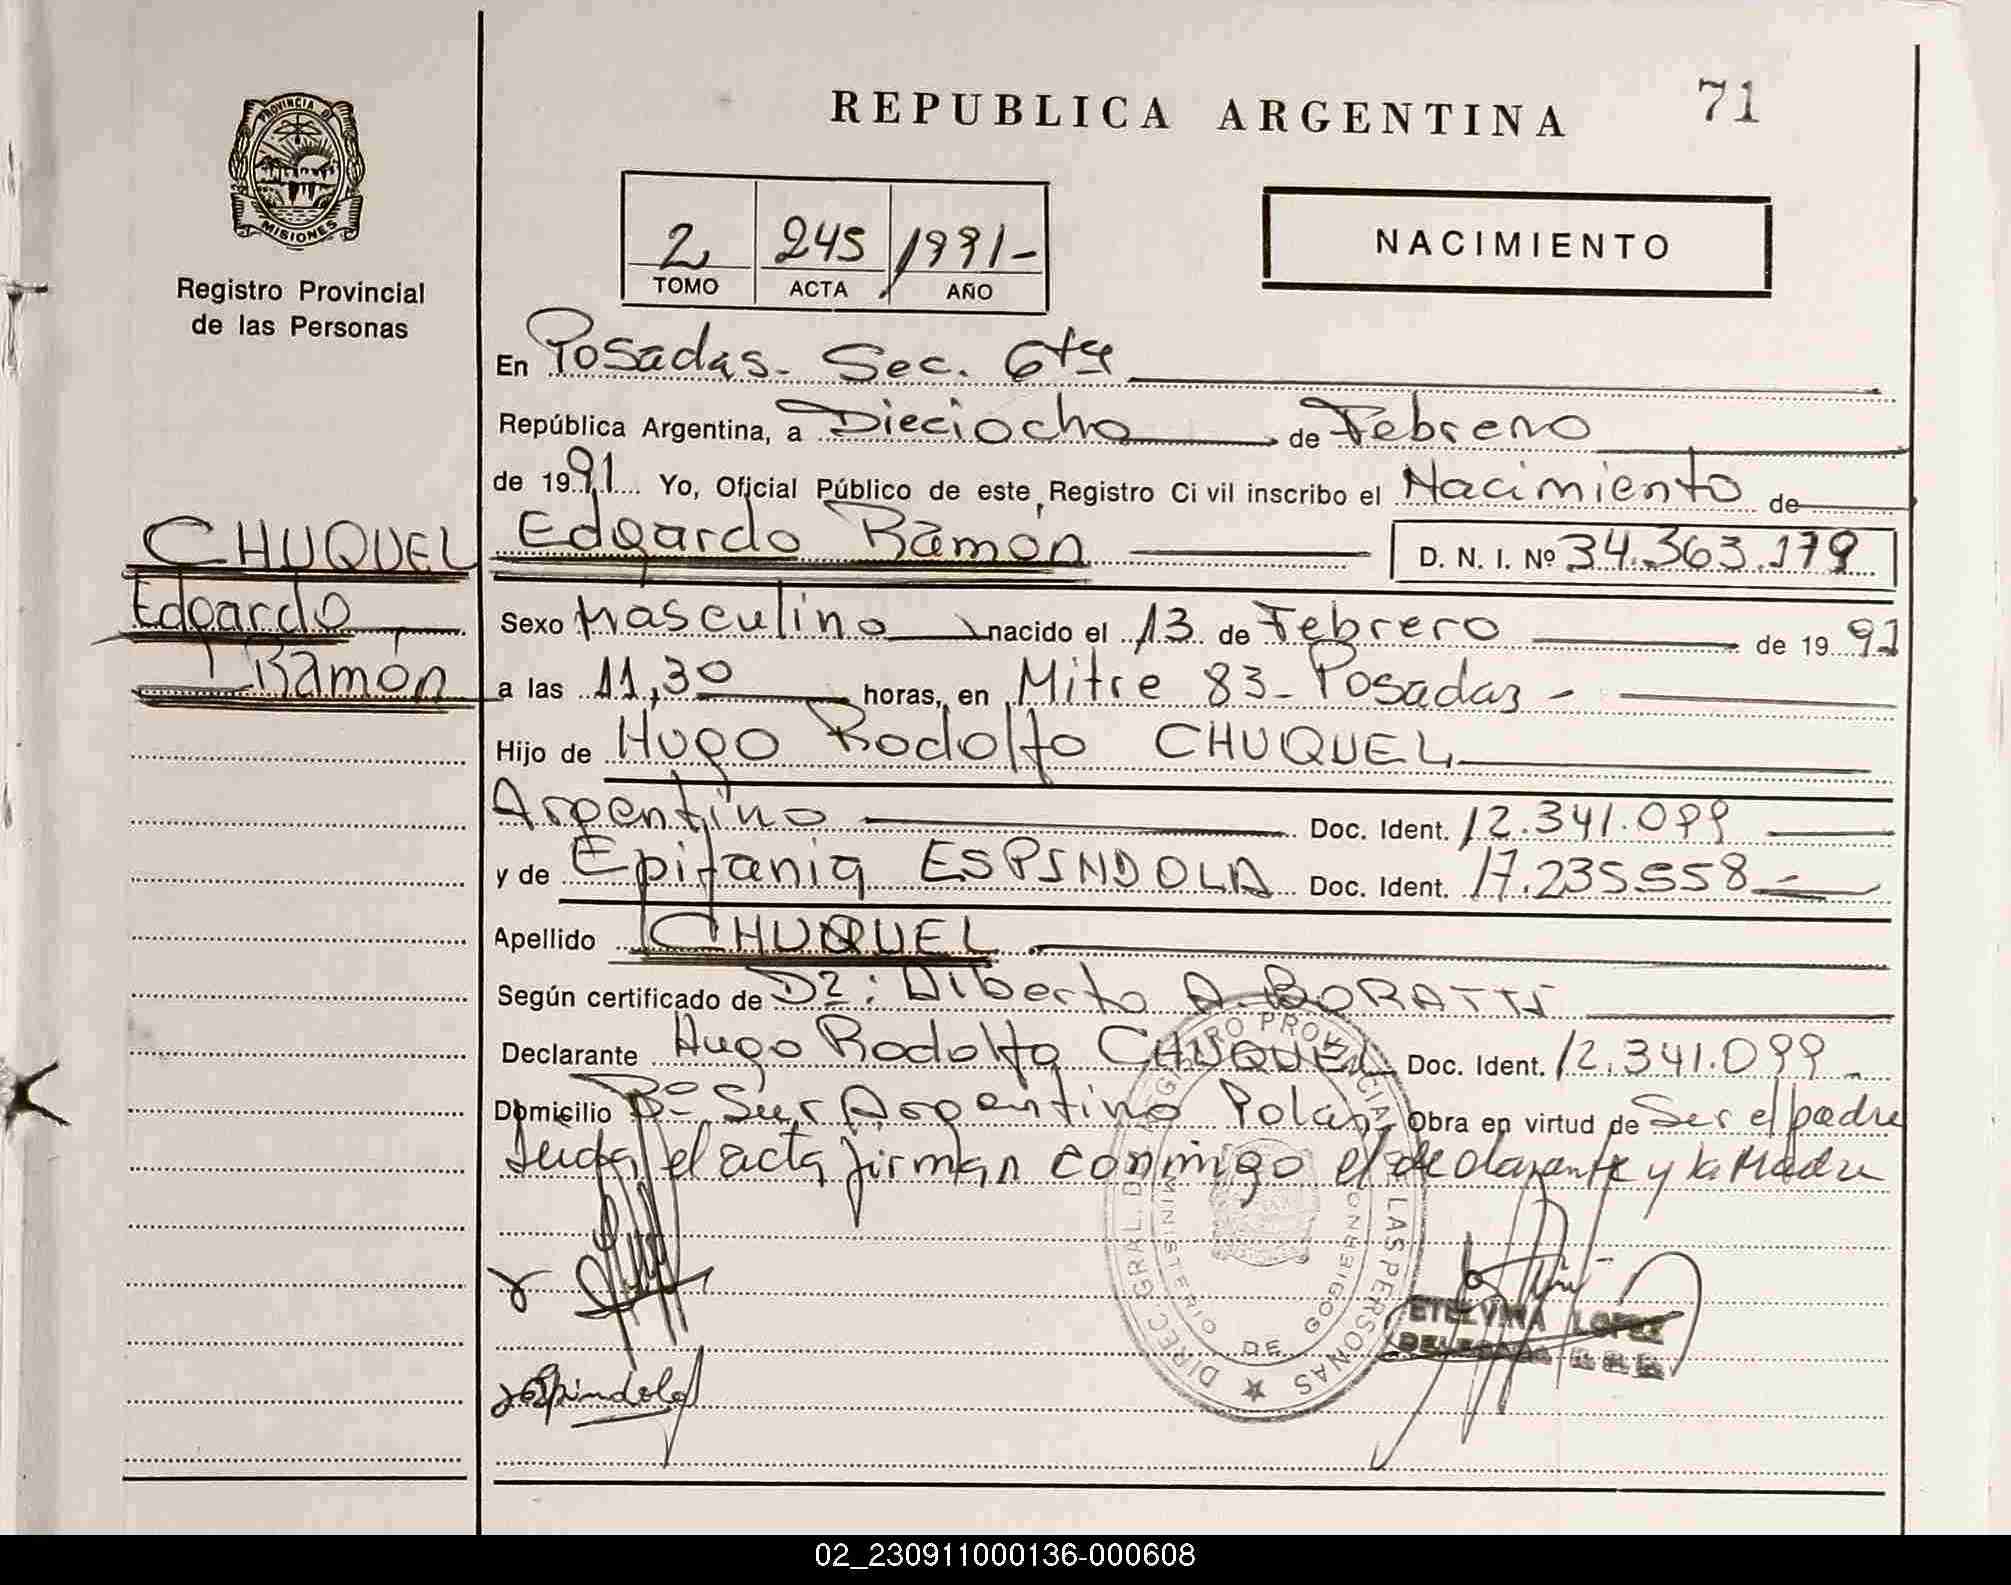 REPUBLICA ARGENTINA
71
PROVINCIA DE MISIONES
Registro Provincial
de las Personas
2 245 1991-
TOMO ACTA AÑO
NACIMIENTO
En Posadas. Sec. 6ta
República Argentina, a Dieciocho de Febrero
de 1991 Yo, Oficial Público de este Registro Civil inscribo el Nacimiento de
CHUQUEL
Edgardo
Ramón
Edgardo Ramón D. N. I. Nº 34.363.179
Sexo Masculino nacido el 13 de Febrero de 1991
a las 11,30 horas, en Mitre 83 - Posadas -
Hijo de Hugo Rodolfo CHUQUEL
Argentino Doc. Ident. 12.341.099
y de Epifania ESPINDOLA Doc. Ident. 17.235.558 -
Apellido CHUQUEL
Según certificado de Dr: Alberto A. BORATTI
Declarante Hugo Rodolfo CHUQUEL Doc. Ident. 12.341.099
Domicilio Bº Sur Argentino Polar Obra en virtud de Ser el padre
Leida el acta firman conmigo el declarante y la Madre
DIREC. GRAL. DEL REGISTRO PROVINCIAL DE LAS PERSONAS
MINISTERIO DE GOBIERNO
ETELVINA LOPEZ
DELEGADA R. P. P.
Espindola
02_230911000136-000608